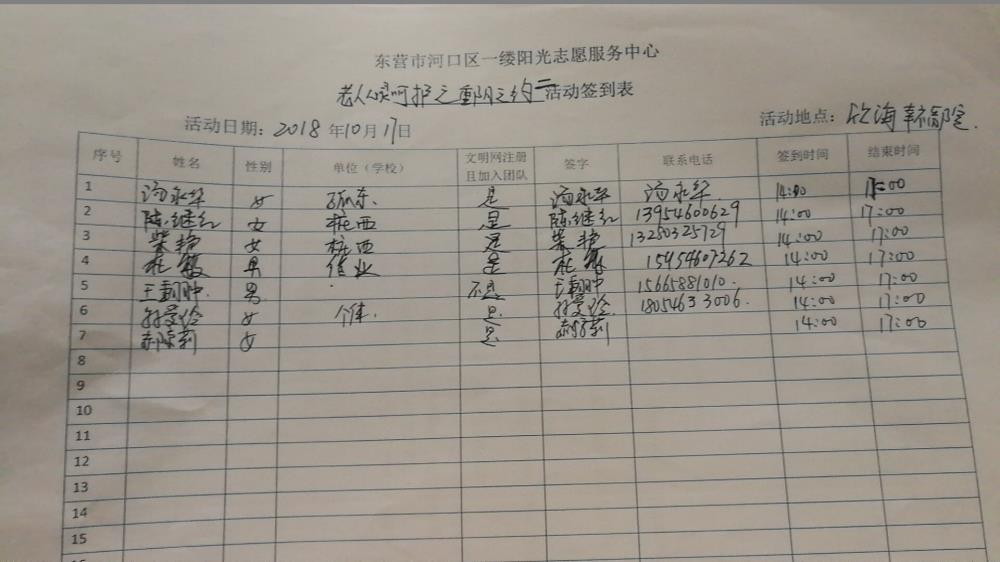 东营市河口区一缕阳光志愿服务中心
老人心灵呵护之重阳之约二活动签到表
活动日期：2018年10月17日 活动地点：欣海幸福院
序号 姓名 性别 单位（学校） 文明网注册且加入团队 签字 联系电话 签到时间 结束时间
1 汤永华 女 孤东 是 汤永华 汤永华 14:00 17:00
2 陈继红 女 桩西 是 陈继红 13954600629 14:00 17:00
3 柴艳 女 桩西 是 柴艳 13250325729 14:00 17:00
4 杜敏 男 是 杜敏 15954607262 14:00 17:00
5 王 男 不是 王 15665881010 14:00 17:00
6 孙爱玲 女 个体 是 孙爱玲 18054633006 14:00 17:00
7 女 是 14:00 17:00
8
9
10
11
12
13
14
15